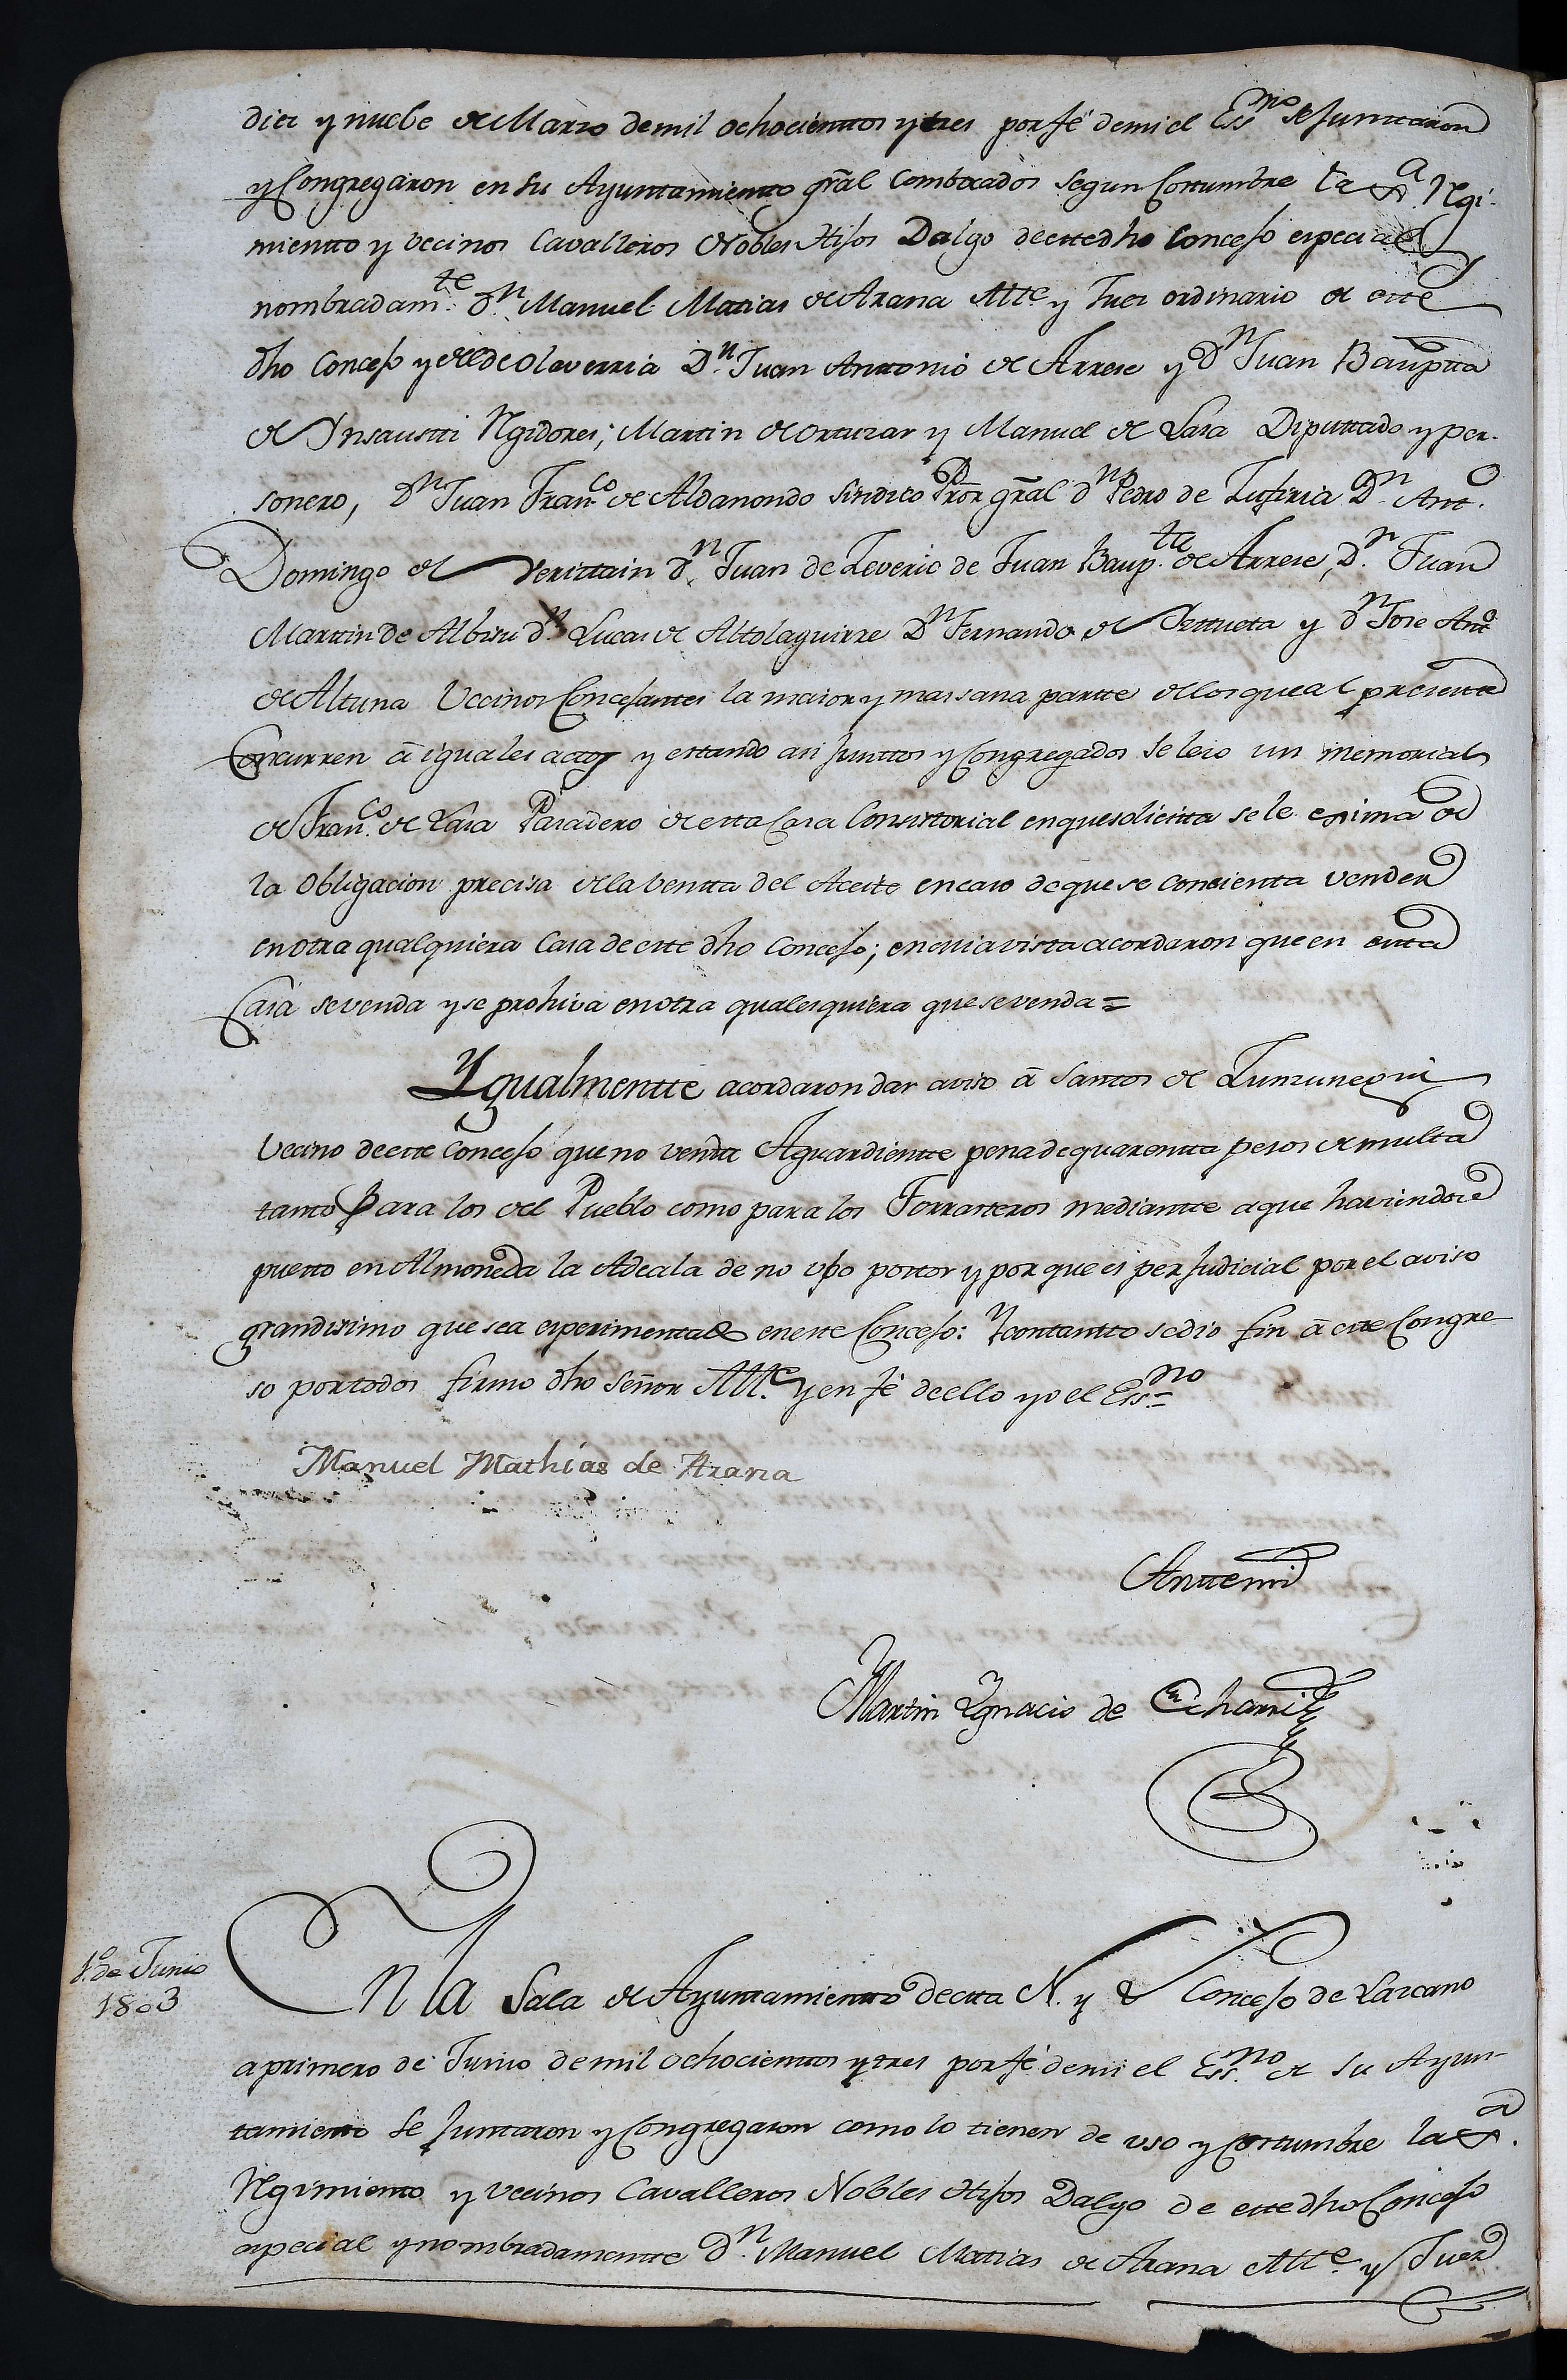 diez y nuebe de Marzo de mil ochocienttos y tres por fé de mi el Essno se Junttaron
y Congregaron en su Ayuntamientto grāl combocados segun Costumbre la Xª Regi-
mientto y vecinos Cavalleros Nobles Hijos Dalgo de este dho Concejo especial y
nombradamte. Dn. Manuel Matias de Arana Alte. y Juez ordinario de este
dho Concejo y el de Olaverria Dn. Juan Anttonio de Arrese y Dn Juan Bauptta
de Ynsaustti Regidores; Martin de Ortuzar y Manuel de Lasa Diputtado y per-
sonero, Dn Juan Franco. de Aldanondo Sindico Pror grāl Dn Pedro de Lusiria Dn. Antto.
Domingo de Veristtain Dn. Juan de Leverio de Juan Baupte. de Arrese, Dn. Juan
Martin de Albisu Dn. Lucas de Altolaguirre Dn Fernando de Urttueta y Dn Jose Anto
de Altuna Vecinos Concejantes la maior y mas sana partte de los que al presentte
Concurren á iguales actos y estando asi Junttos y Congregados se leio un memorial
de Franco. de Lasa Posadero de esta Casa Consistorial en que solicitta se le exima de
la obligacion precisa de la ventta del Aceite en caso de que se consienta vender
en otra qualquiera Casa de este dho Concejo; en cuia vista acordaron que en estta
Casa se venda y se prohiva en otra qualesquiera que se venda =
Ygualmentte acordaron dar aviso á Santos de Lunzunegui
Vecino de este Concejo que no venda Aguardientte pena de quarentta pesos de multa
tanto Para los del Pueblo como para los Forrasteros mediantte a que haviendose
puesto en Almoneda la Adeala de no upo postor y por que es perjudicial por el aviso
grandisimo que sea esperimentado en este Concejo: Y con tantto se dio fin á este Congre-
so por todos firmo dho Señor Alle. y en fé de ello yo el Essno =
Manuel Mathias de Arana
Antte mi
Martin Ygnacio de Echarri
1º. de Junio
1803
En la Sala de Ayuntamientto de esta N. y L Concejo de Lazcano
a primero de Junio de mil ochocienttos y tres por fé de mi el Essno. de su Ayun-
tamiento se Juntaron y Congregaron como lo tienen de uso y costumbre la Xª.
Regimiento y vecinos Cavalleros Nobles Hijos Dalgo de este dho Concejo
especial y nombradamentte Dn. Manuel Matias de Arana Alte. y Juez